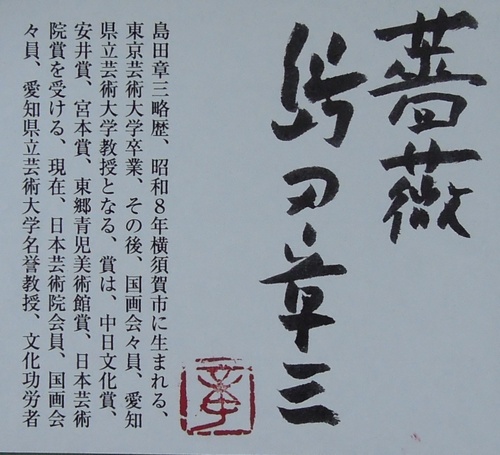 薔薇
島田章三
島田章三略歴、昭和8年横須賀市に生まれる、
東京芸術大学卒業、その後、国画会々員、愛知
県立芸術大学教授となる、賞は、中日文化賞、
安井賞、宮本賞、東郷青児美術館賞、日本芸術
院賞を受ける、現在、日本芸術院会員、国画会
々員、愛知県立芸術大学名誉教授、文化功労者
章